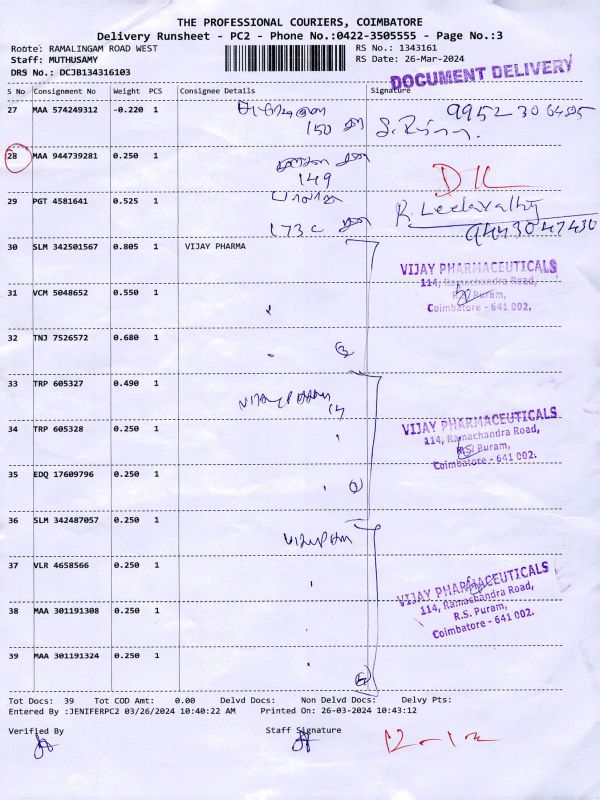 THE PROFESSIONAL COURIERS, COIMBATORE
Delivery Runsheet - PC2 - Phone No.:0422-3505555 - Page No.:3
Route: RAMALINGAM ROAD WEST
Staff: MUTHUSAMY
DRS No.: DCJB134316103
RS No.: 1343161
RS Date: 26-Mar-2024
DOCUMENT DELIVERY
S No Consignment No Weight PCS Consignee Details Signature
27 MAA 574249312 -0.220 1
150
28 MAA 944739281 0.250 1
149
DIL
29 PGT 4581641 0.525 1
173 C
R. Leelavathy
9443047430
30 SLM 342501567 0.805 1 VIJAY PHARMA
VIJAY PHARMACEUTICALS
114, Ramachandra Road,
R.S. Puram,
Coimbatore - 641 002.
31 VCM 5048652 0.550 1
32 TNJ 7526572 0.680 1
3
33 TRP 605327 0.490 1
34 TRP 605328 0.250 1
VIJAY PHARMACEUTICALS
114, Ramachandra Road,
R.S. Puram,
Coimbatore - 641 002.
35 EDQ 17609796 0.250 1
36 SLM 342487057 0.250 1
37 VLR 4658566 0.250 1
VIJAY PHARMACEUTICALS
114, Ramachandra Road,
R.S. Puram,
Coimbatore - 641 002.
38 MAA 301191308 0.250 1
39 MAA 301191324 0.250 1
Tot Docs: 39 Tot COD Amt: 0.00 Delvd Docs: Non Delvd Docs: Delvy Pts:
Entered By :JENIFERPC2 03/26/2024 10:40:22 AM Printed On: 26-03-2024 10:43:12
Verified By Staff Signature